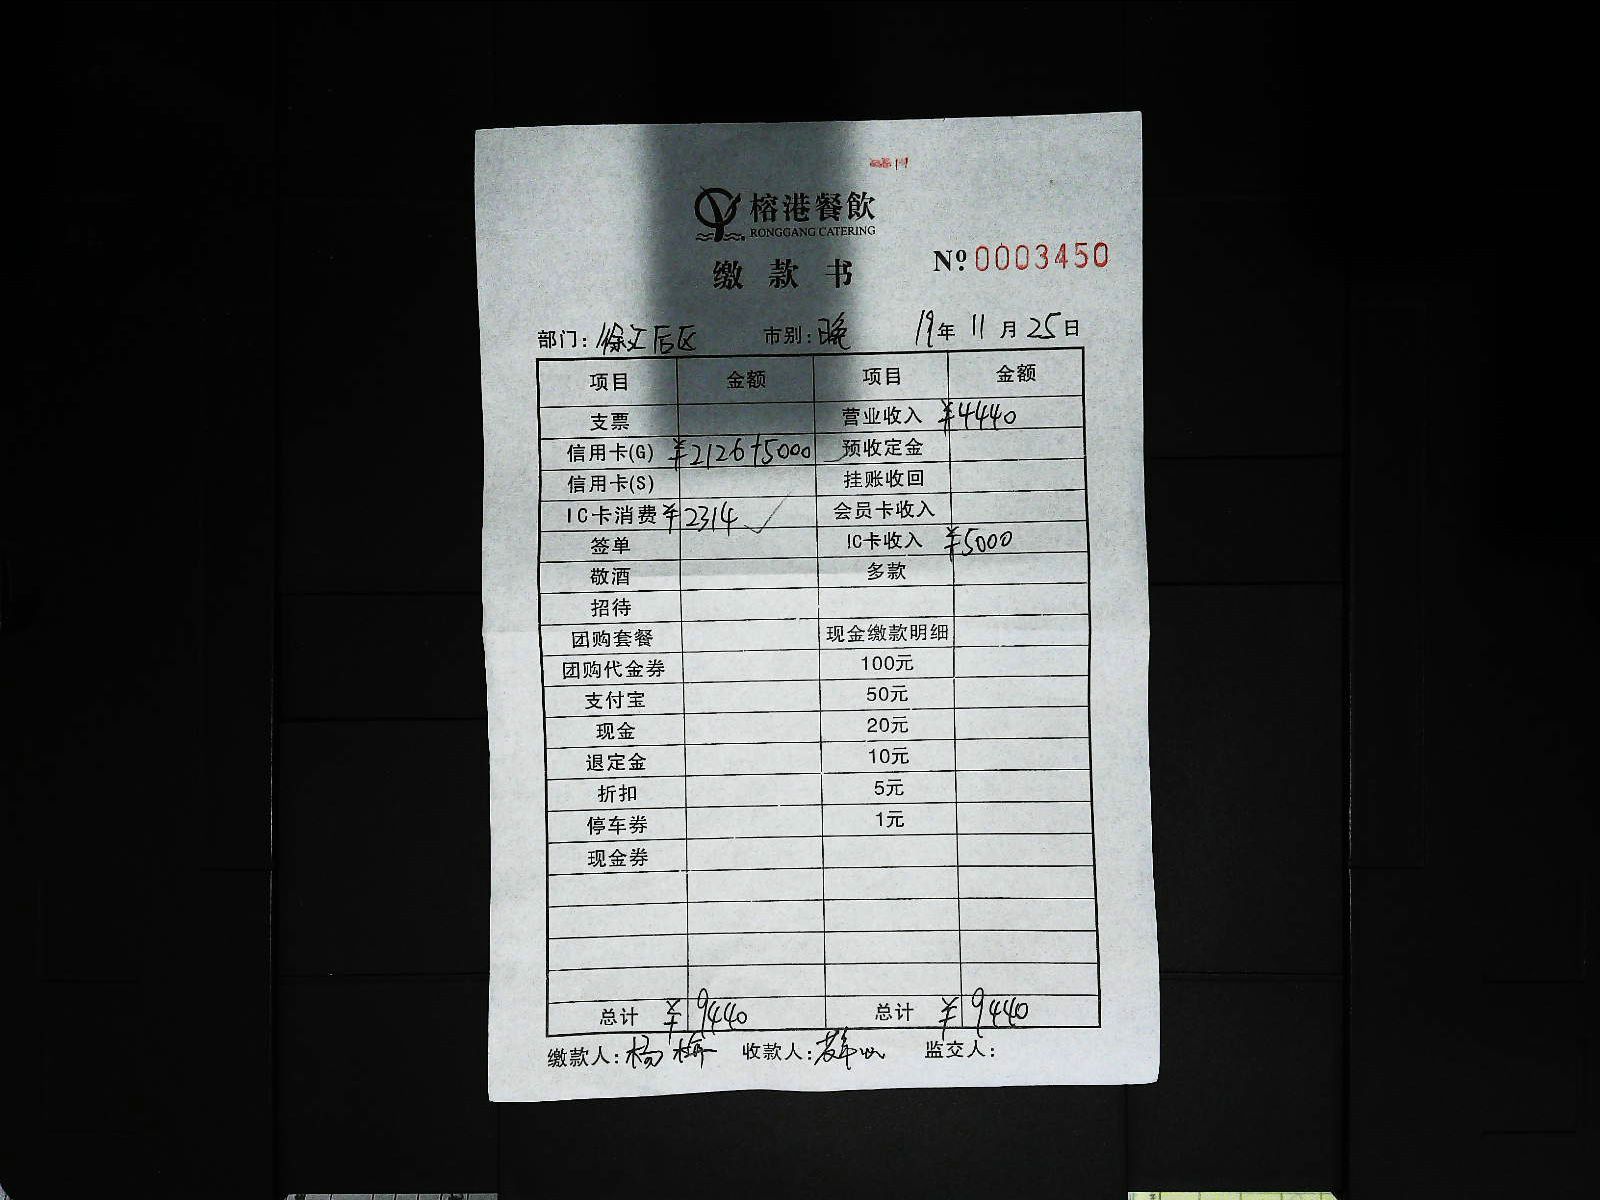 榕港餐飲
RONGGANG CATERING
缴款书
№ 0003450
部门: 徐汇后区 市别: 晚 19年 11月 25日
项目 金额 项目 金额
支票 营业收入 ¥4440
信用卡(G) ¥2126+5000 预收定金
信用卡(S) 挂账收回
IC卡消费 ¥2314 ✓ 会员卡收入
签单 IC卡收入 ¥5000
敬酒 多款
招待
团购套餐 现金缴款明细
团购代金券 100元
支付宝 50元
现金 20元
退定金 10元
折扣 5元
停车券 1元
现金券
总计 ¥9440 总计 ¥9440
缴款人: 杨梅 收款人: 监交人: